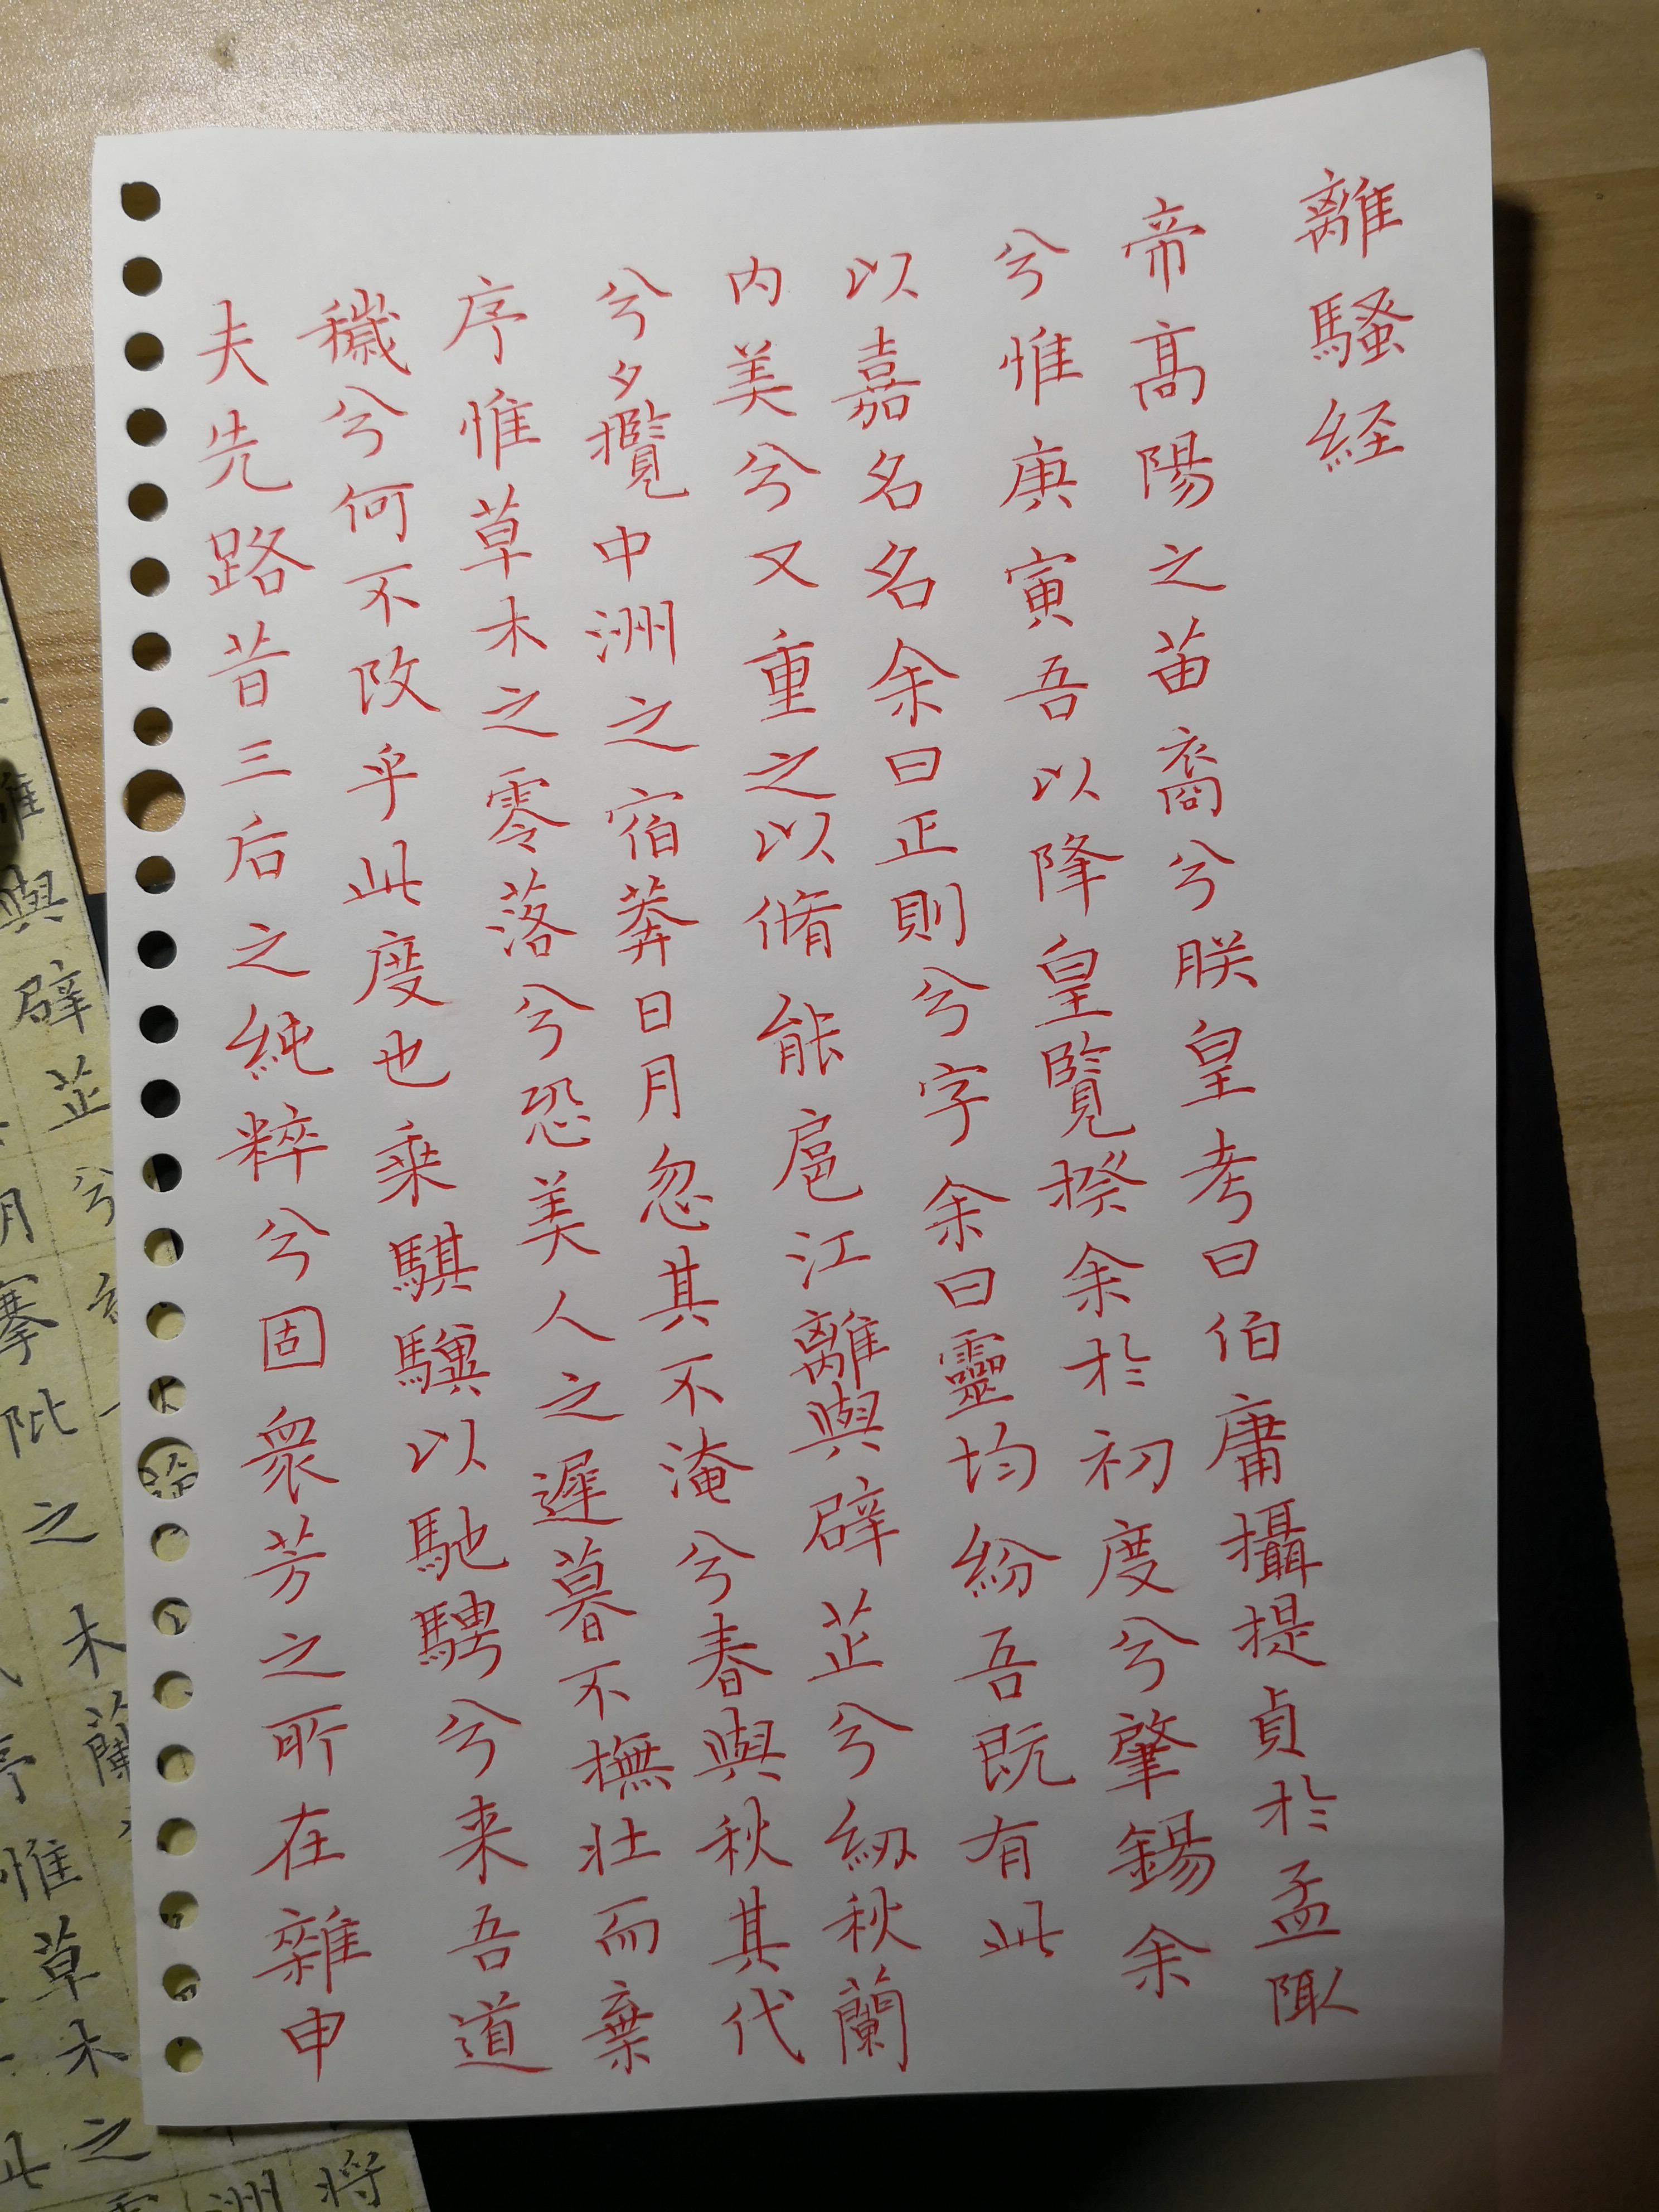 離騷経
帝髙陽之苗裔兮朕皇考曰伯庸攝提貞於孟陬
兮惟庚寅吾以降皇覽揆余於初度兮肇錫余
以嘉名名余曰正則兮字余曰靈均紛吾既有此
内美兮又重之以脩能扈江離與辟芷兮紉秋蘭
兮夕攬中洲之宿莽日月忽其不淹兮春與秋其代
序惟草木之零落兮恐美人之遲暮不撫壯而棄
穢兮何不改乎此度也乗騏驥以馳騁兮来吾道
夫先路昔三后之純粹兮固衆芳之所在雜申